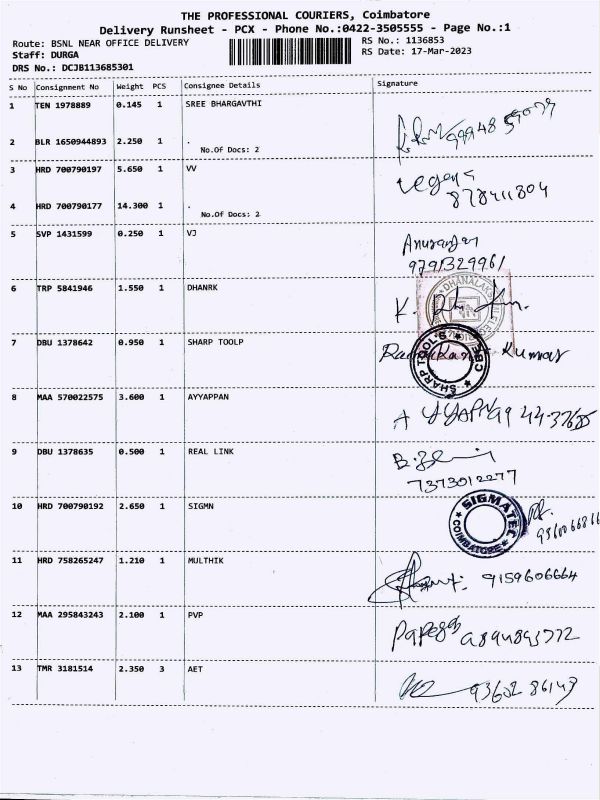 THE PROFESSIONAL COURIERS, Coimbatore
Delivery Runsheet - PCX - Phone No.:0422-3505555 - Page No.:1
Route: BSNL NEAR OFFICE DELIVERY
RS No.: 1136853
Staff: DURGA
RS Date: 17-Mar-2023
DRS No.: DCJB113685301
S No Consignment No Weight PCS Consignee Details Signature
1 TEN 1978889 0.145 1 SREE BHARGAVTHI
2 BLR 1650944893 2.250 1 .
No.Of Docs: 2
3 HRD 700790197 5.650 1 VV
878411804
4 HRD 700790177 14.300 1 .
No.Of Docs: 2
5 SVP 1431599 0.250 1 VJ
9791329961
6 TRP 5841946 1.550 1 DHANRK
K.
7 DBU 1378642 0.950 1 SHARP TOOLP
SHARP TOOL'S CBC
Kumar
8 MAA 570022575 3.600 1 AYYAPPAN
AYYAPN
9 DBU 1378635 0.500 1 REAL LINK
7373012277
10 HRD 700790192 2.650 1 SIGMN
SIGMATEC COIMBATORE
11 HRD 758265247 1.210 1 MULTHIK
9159606664
12 MAA 295843243 2.100 1 PVP
13 TMR 3181514 2.350 3 AET
93602 86143